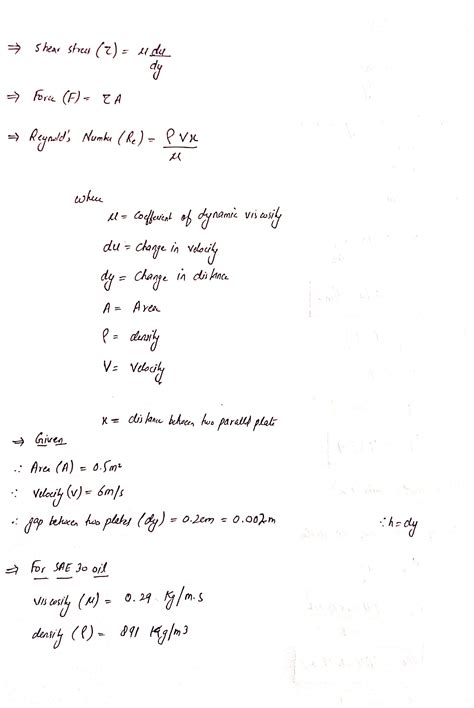 ⇒ Shear stress (τ) = μ du/dy
⇒ Force (F) = τ A
⇒ Reynold's Number (Re) = ρVx/μ
where
μ = coefficient of dynamic viscosity
du = change in velocity
dy = change in distance
A = Area
ρ = density
V = Velocity
x = distance between two parallel plate
⇒ Given
∴ Area (A) = 0.5m²
∴ velocity (v) = 6m/s
∴ gap between two plates (dy) = 0.2cm = 0.002m ∵ h = dy
⇒ For SAE 30 oil
viscosity (μ) = 0.29 Kg/m.s
density (ρ) = 891 Kg/m3